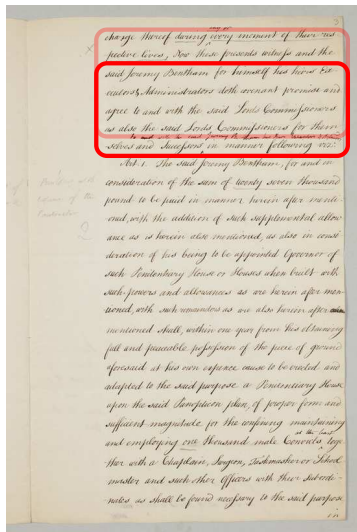 3
charge thereof during every moment of their res
pective lives, Now these presents witness and the
said Jeremy Bentham for himself his heirs Ex
ecutors & Administrators doth covenant promise and
agree to and with the said Lords Commissioners
as also the said Lords Commissioners for them
selves and Successors in manner following viz:
Art. 1. The said Jeremy Bentham, for and in
consideration of the sum of twenty seven thousand
pound to be paid in manner herein after menti-
oned, with the addition of such supplemental allow
ance as is herein also mentioned, as also in consi
deration of his being to be appointed Governor of
such Penitentiary House or Houses when built with
such powers and allowances as are herein after men
tioned, with such remainders as are also herein after
mentioned shall, within one year from his obtaining
full and peaceable possession of the piece of ground
aforesaid at his own expence cause to be erected and
adapted to the said purpose a Penitentiary House
upon the said Panopticon plan, of proper form and
sufficient magnitude for the confining maintaining
at the least
and employing one thousand male Convicts, toge
ther with a Chaplain, Surgeon, Taskmaster or School
master and such other Officers with their subordi-
nates as shall be found necessary to the said purpose